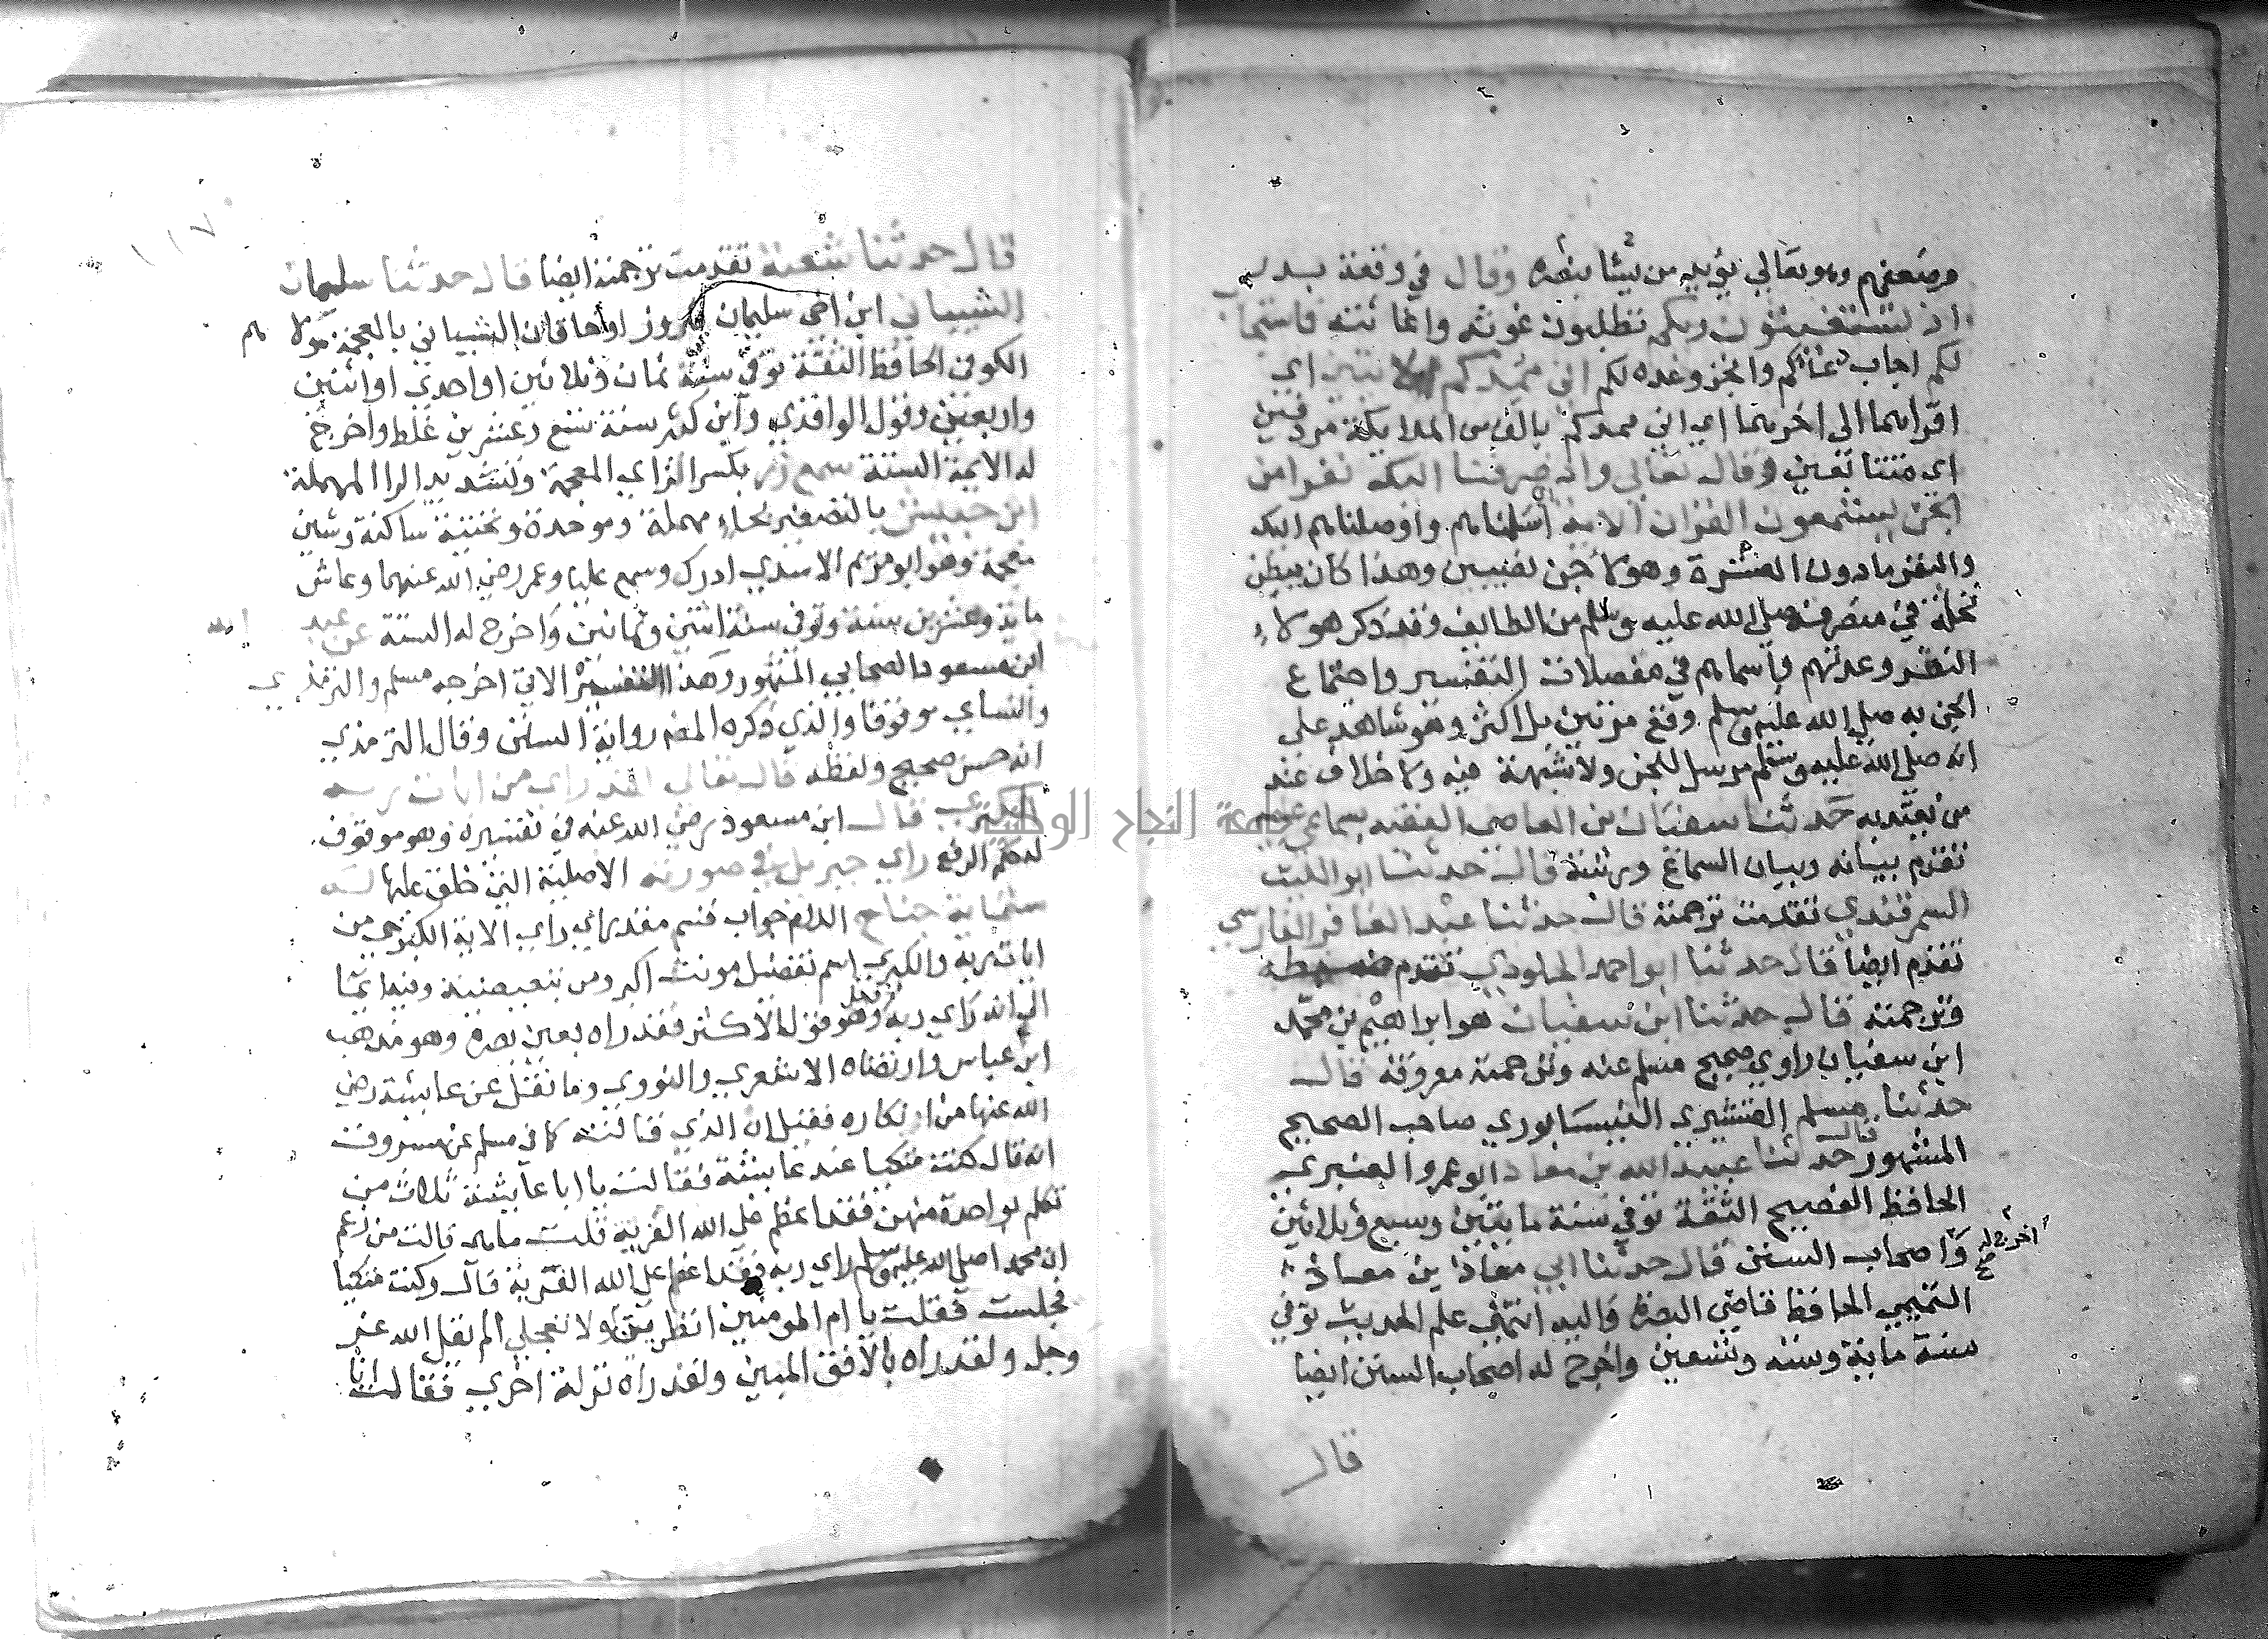 وضعفهم وهو تعالي يؤيد من يشا بنصره وقال في وقعة بدر
اذ تستغيثون ربكم تطلبون غوثه واغاثته فاستجاب
لكم اجاب دعاكم وانجز وعده لكم اني ممدكم الايتين اي
اقراهما الى اخرهما اي اني ممدكم بالف من الملايكة مردفين
اي متتابعين وقال تعالي واذ صرفنا اليك نفرا من
الجن يستمعون القران الاية املناهم واوصلناهم اليك
والنفر ما دون العشرة وهولا جن نصيبين وهذا كان ببطن
نخلة في منصرفه صلي الله عليه وسلم من الطايف وقد ذكر هولاء
النفر وعدتهم واسماهم في مفصلات التفسير واجتماع
الجن به صلي الله عليه وسلم وقع مرتين بل اكثر وهو شاهد على
انه صلي الله عليه وسلم مرسل للجن ولا شبهة فيه ولا خلاف عند
من يعتد به حدثنا سفيان بن العاصي الفقيه بسماعي عليه
تقدم بيانه وبيان السماع ورتبته قال حدثنا ابو الليث
السمرقندي تقدمت ترجمته قال حدثنا عبد الغافر الفارسي
تقدم ايضا قال حدثنا ابو احمد الجلودي تقدم ضبطه
وترجمته قال حدثنا ابن سفيان هو ابراهيم بن محمد
ابن سفيان راوي صحيح مسلم عنه وترجمته معروفة قال
حدثنا مسلم القشيري النيسابوري صاحب الصحيح
المشهور قال حدثنا عبيد الله بن معاذ ابو عمرو العنبري
الحافظ الفصيح الثقة توفي سنة مايتين وسبع وثلاثين
اخرج له خ واصحاب السنن قال حدثنا ابي معاذ بن معاذ
التميمي الحافظ قاضي البصرة واليه انتهي علم الحديث توفي
سنة ماية وستة وتسعين واخرج له اصحاب السنن ايضا
قال
١١٧
قال حدثنا شعبة تقدمت ترجمته ايضا قال حدثنا سليمان
الشيباني ابن ابي سليمان فيروز او خاقان الشيباني بالمعجمة مولاهم
الكوفي الحافظ الثقة توفي سنة ثمان وثلاثين او احدي او اثنين
واربعين وقول الواقدي وابن كثير سنة تسع وعشرين غلط واخرج
له الايمة الستة سمع زر بكسر الزاي المعجمة وتشديد الرا المهملة
ابن حبيش بالتصغير بحاء مهملة وموحدة وتحتية ساكنة وشين
معجمة وهو ابو مريم الاسدي ادرك وسمع عليا وعمر رضي الله عنهما وعاش
ماية وعشرين سنة وتوفي سنة اثنين وثمانين واخرج له الستة عن عبد الله
ابن مسعود الصحابي المشهور وهذا التفسير الاتي اخرجه مسلم والترمذي
والنساي موقوفا والذي ذكره المص رواية السنن وقال الترمذي
انه حسن صحيح ولفظه قال تعالي لقد راي من ايات ربه
الكبري قال ابن مسعود رضي الله عنه في تفسيره وهو موقوف
له حكم الرفع راي جبريل في صورته الاصلية التي خلق عليها له
ستماية جناح اللام جواب قسم مقدر اي راي الاية الكبري من
ايات ربه والكبري اسم تفضيل مونث اكبر ومن تبعيضية وفيه ايما
الي انه راي ربه وقيل وهو قول الاكثر فقد راه بعين بصره وهو مذهب
ابن عباس وارتضاه الاشعري والنووي وما نقل عن عايشة رضي
الله عنها من انكاره فقيل ان الذي قالته كما في مسلم عن مسروق
انه قال كنت متكيا عند عايشة فقالت يا ابا عايشة ثلاث من
تكلم بواحدة منهن فقد اعظم علي الله الفرية قلت ماهن قالت من زعم
ان محمدا صلي الله عليه وسلم راي ربه فقد اعظم علي الله الفرية قال وكنت متكيا
فجلست فقلت يا ام المومنين انظريني ولا تعجلي الم يقل الله عز
وجل ولقد راه بالافق المبين ولقد راه نزلة اخري فقالت انا
جامعة النجاح الوطنية